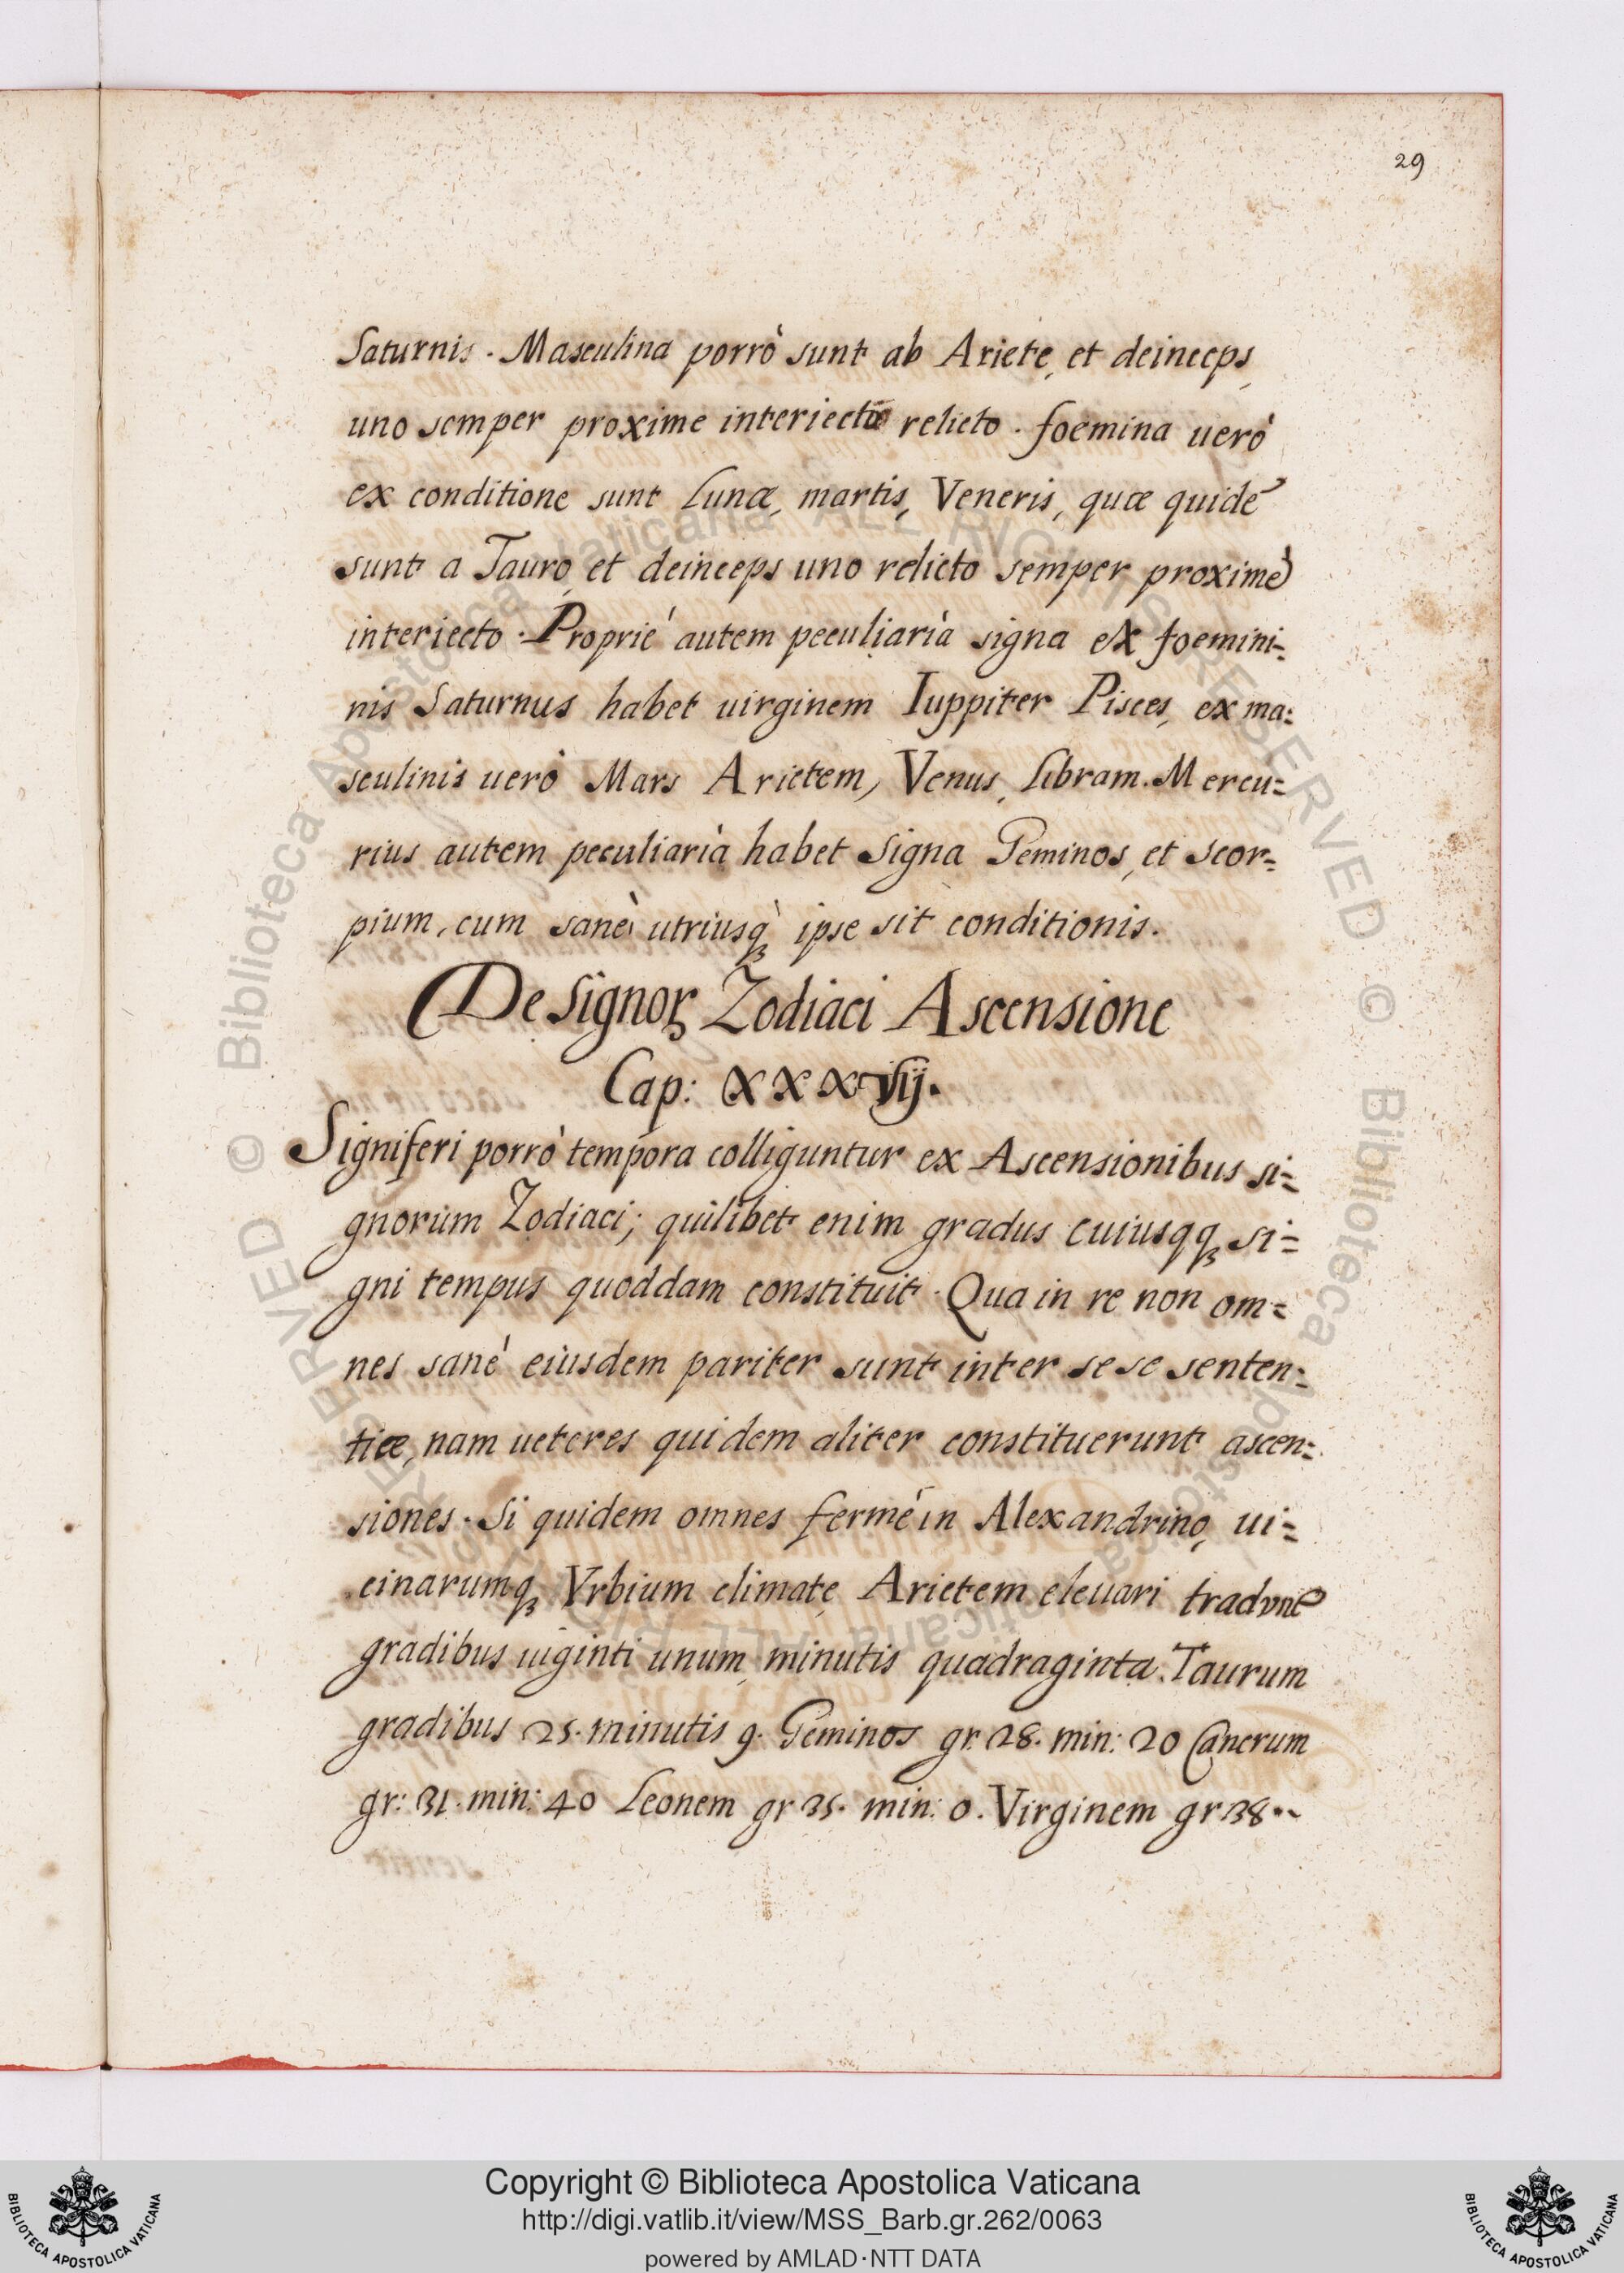 29
Saturnis. Masculina porrò sunt ab Ariete, et deinceps,
uno semper proxime interiecto relicto. foemina uerò
ex conditione sunt Lunæ, martis, Veneris, quæ quidē
sunt a Tauro, et deinceps uno relicto semper proximè
interiecto. Propriè autem peculiaria signa ex foemini=
nis Saturnus habet uirginem Iuppiter Pisces, ex ma=
sculinis uerò Mars Arietem, Venus, Libram. Mercu=
rius autem peculiaria habet signa Geminos, et scor=
pium, cum sanè utriusq3 ipse sit conditionis.
De Signoꝝ Zodiaci Ascensione
Cap: XXXVIIj.
Signiferi porrò tempora colliguntur ex Ascensionibus si=
gnorum Zodiaci; quilibet enim gradus cuiusqq3 si=
gni tempus quoddam constituit. Qua in re non om=
nes sanè eiusdem pariter sunt inter sese senten=
tiæ, nam ueteres quidem aliter constituerunt ascen=
siones. Si quidem omnes fermè in Alexandrino, ui=
cinarumq3 Vrbium climate, Arietem eleuari tradunt
gradibus uiginti unum, minutis quadraginta. Taurum
gradibus 25. minutis 9. Geminos gr. 28. min: 20 Cancrum
gr: 31. min: 40 Leonem gr 35. min: 0. Virginem gr 38..
© Biblioteca Apostolica Vaticana ALL RIGHTS RESERVED © Biblioteca Apostolica Vaticana ALL RIGHTS RESERVED
Copyright © Biblioteca Apostolica Vaticana
http://digi.vatlib.it/view/MSS_Barb.gr.262/0063
powered by AMLAD·NTT DATA
BIBLIOTECA APOSTOLICA VATICANA
BIBLIOTECA APOSTOLICA VATICANA